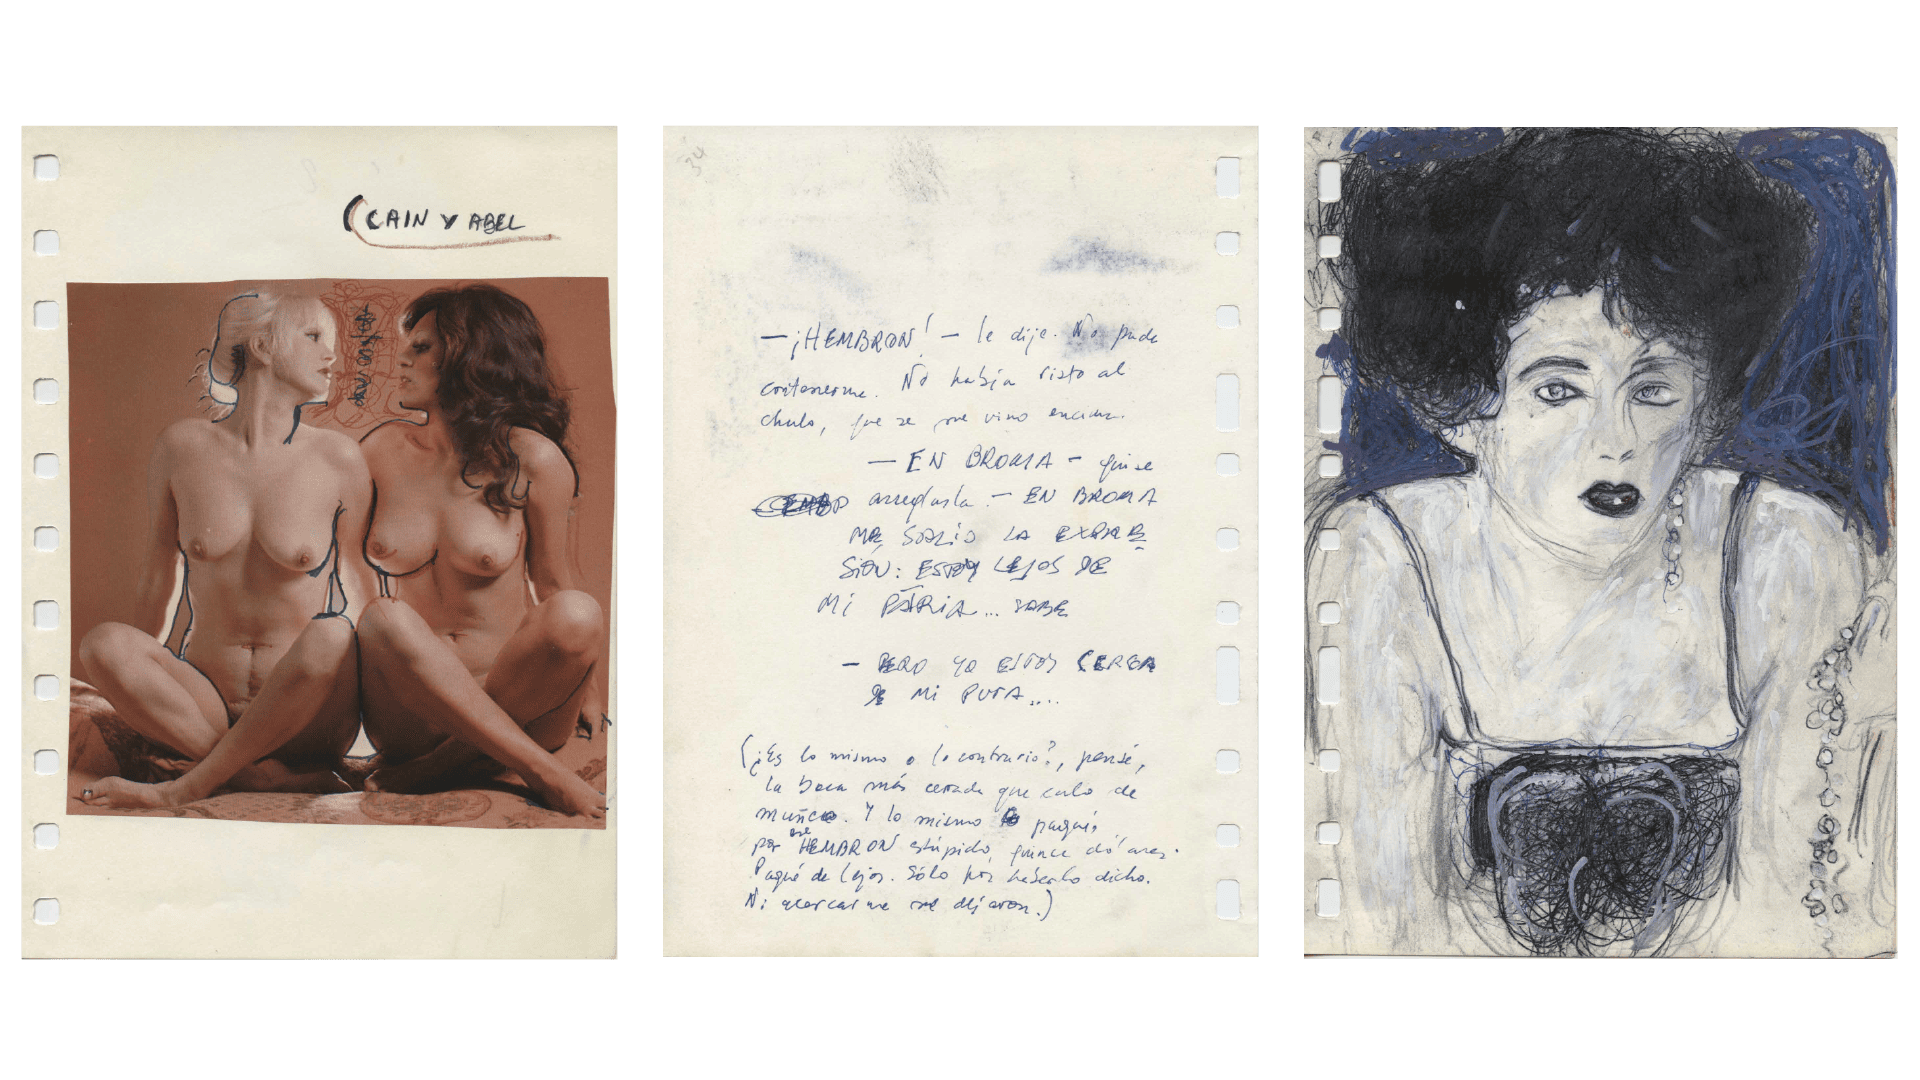 CAIN Y ABEL
34
— ¡HEMBRON! — le dije. No pude
contenerme. No había visto al
chulo, que se me vino encima.
— EN BROMA — quise
arreglarla — EN BROMA
ME SALIÓ LA EXPRE
SIÓN: ESTOY LEJOS DE
MI PÁTRIA... SABE
— PERO YO ESTOY CERCA
DE MI PUTA....
(¿Es lo mismo o lo contrario?, pensé,
la boca más cerrada que culo de
muñeco. Y lo mismo pagué
por ese HEMBRON estúpido, quince dólares.
Pagué de lejos. Sólo por haberlo dicho.
Ni acercarme me dejaron.)